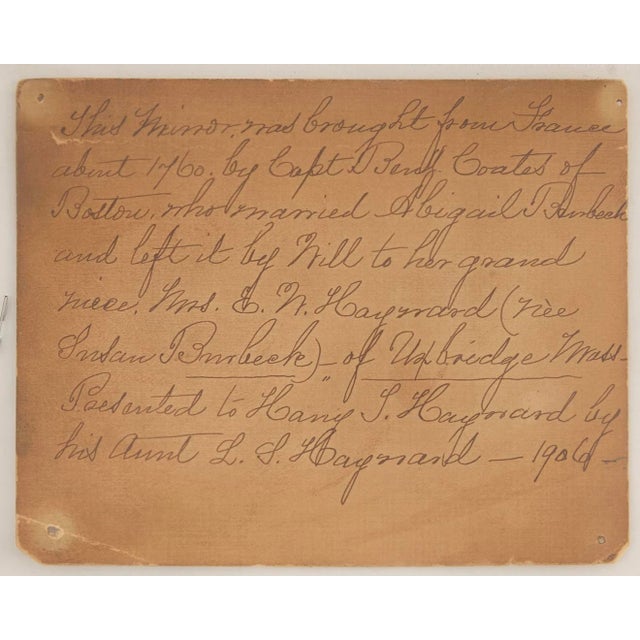 This Mirror, was brought from France
about 1760. by Capt. Benj. Coates of
Boston, who married Abigail Burbeck
and left it by Will to her grand
niece. Mrs. E. W. Hayward (née
Susan Burbeck) - of Uxbridge Mass -
Presented to Harry S. Hayward by
his Aunt L. S. Hayward - 1906 -